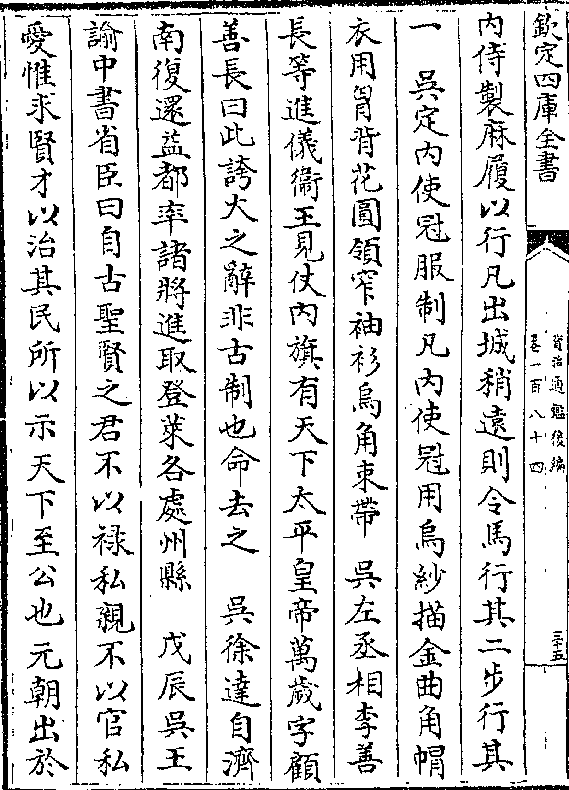 欽定四庫全書
資治通鑑後編
卷一百八十四
三十五
内侍製麻履以行凡出城稍遠則令馬行其二步行其
一　吳定内使冠服制凡内使冠用烏紗描金曲角帽
衣用胷背花圓領窄袖衫烏角束帶　吳左丞相李善
長等進儀衞王見仗内旗有天下太平皇帝萬歲字顧
善長曰此誇大之辭非古制也命去之　吳徐達自濟
南復還益都率諸將進取登萊各處州縣　戊辰吳王
諭中書省臣曰自古聖賢之君不以禄私親不以官私
愛惟求賢才以治其民所以示天下至公也元朝出於